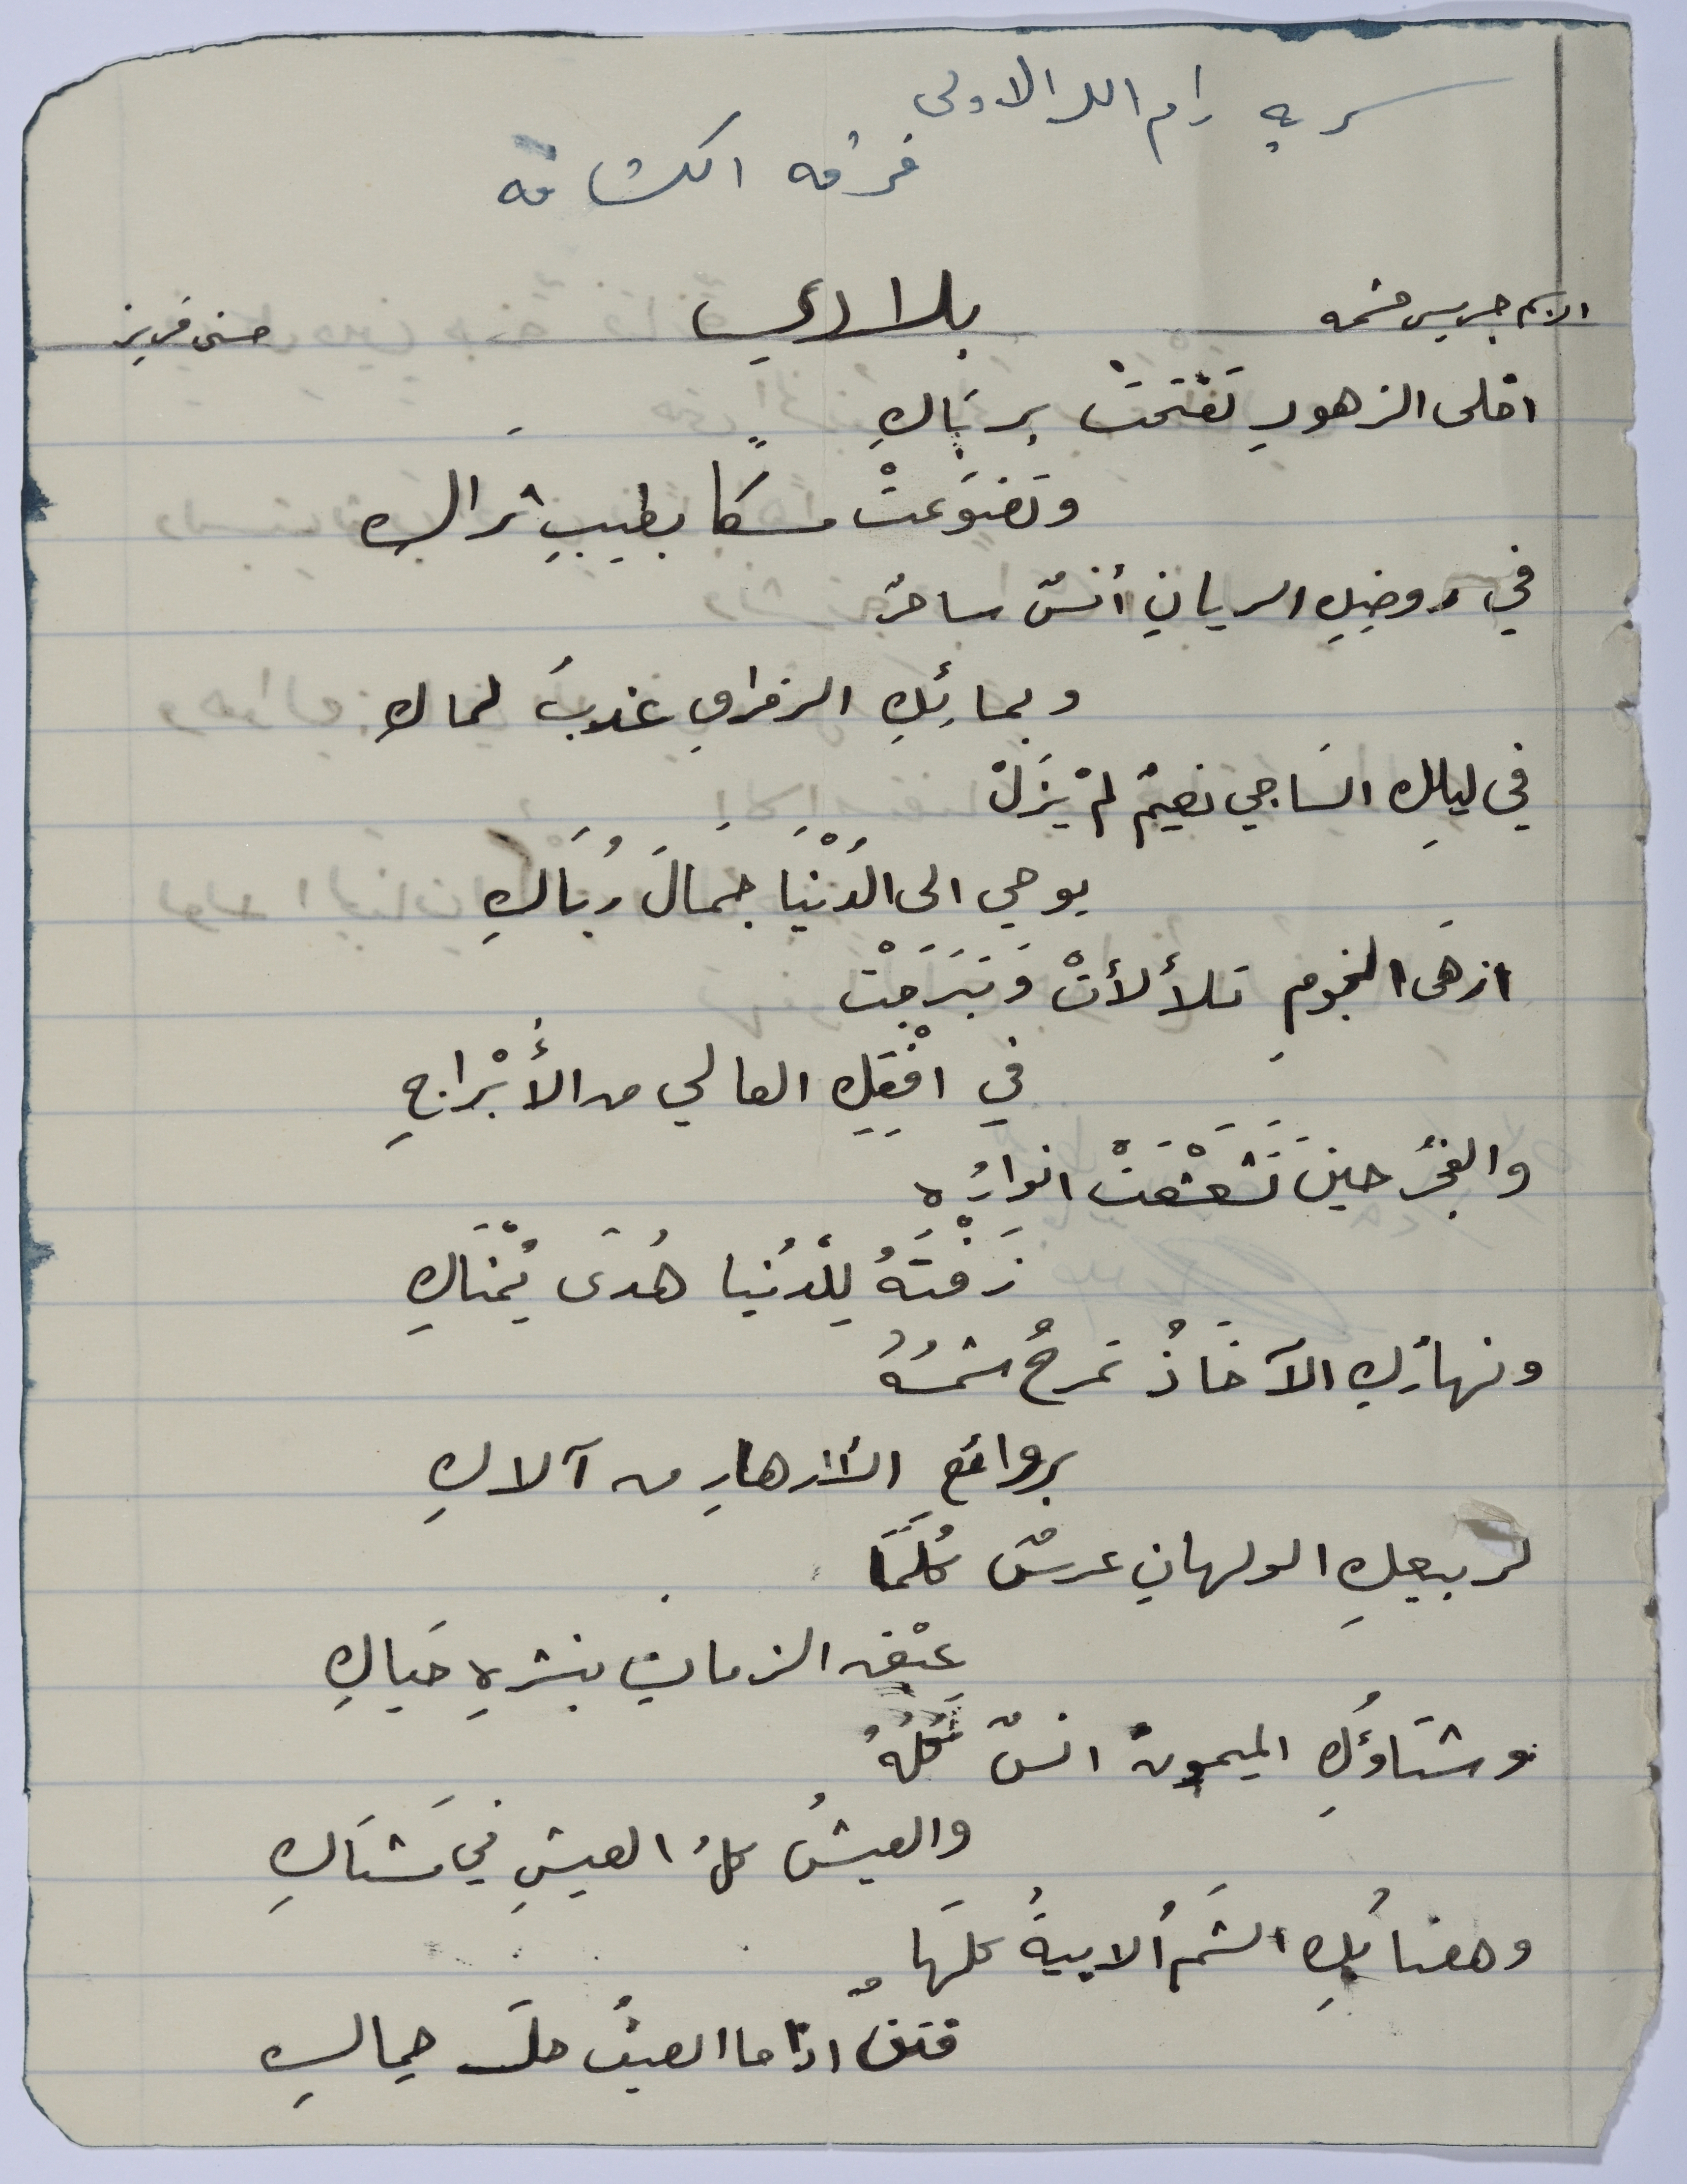 سرية رام الله الاولى
فرقة الكشافة
الاسم جريس بلادي حسني فريز
احلى الزهورِ تَفَتَحَتْ بِربَاكِ
وتَضَوَعتْ مسكا بطيبِ ثراكِ
في روضِكِ الريانِ أنسٌ ساحرٌ
وبمائِكِ الرقراقِ عذبُ لماكِ
في ليلِكِ السَاجي نعيمٌ لمْ يَزَلْ
يوحي الى الدُنْيَا جَمَالَ رُبَاكِ
ازهَى النجومِ تلألأتْ وَتَبَرَجَتْ
في افْقِكِ العالي من الأَبْراجِ
والفجرُ حينَ تَشَعْشَعَتْ انوارُه
زَفْتَهُ لِلْدُنيا هُدَى يُمْنَاكِ
ونهارُكِ الآخَاذُ تمرحُ شمسُهُ
بروائعِ الأزهارِ من آلاكِ
لربيعِكِ الولهانِ عرسٌ كُلَمَا
عبْقَ الزمانُ بنشرِهِ حَياكِ
وشتَاوُكِ الميمونُ انسٌ كُلُهُ
والعيشُ كلُ العيشِ في مَشتَاكِ
وهضابُكِ الشَمُ الابيةُ كلهَا
فتنٌ اذا ما الصيفُ حلَ حِماكِ